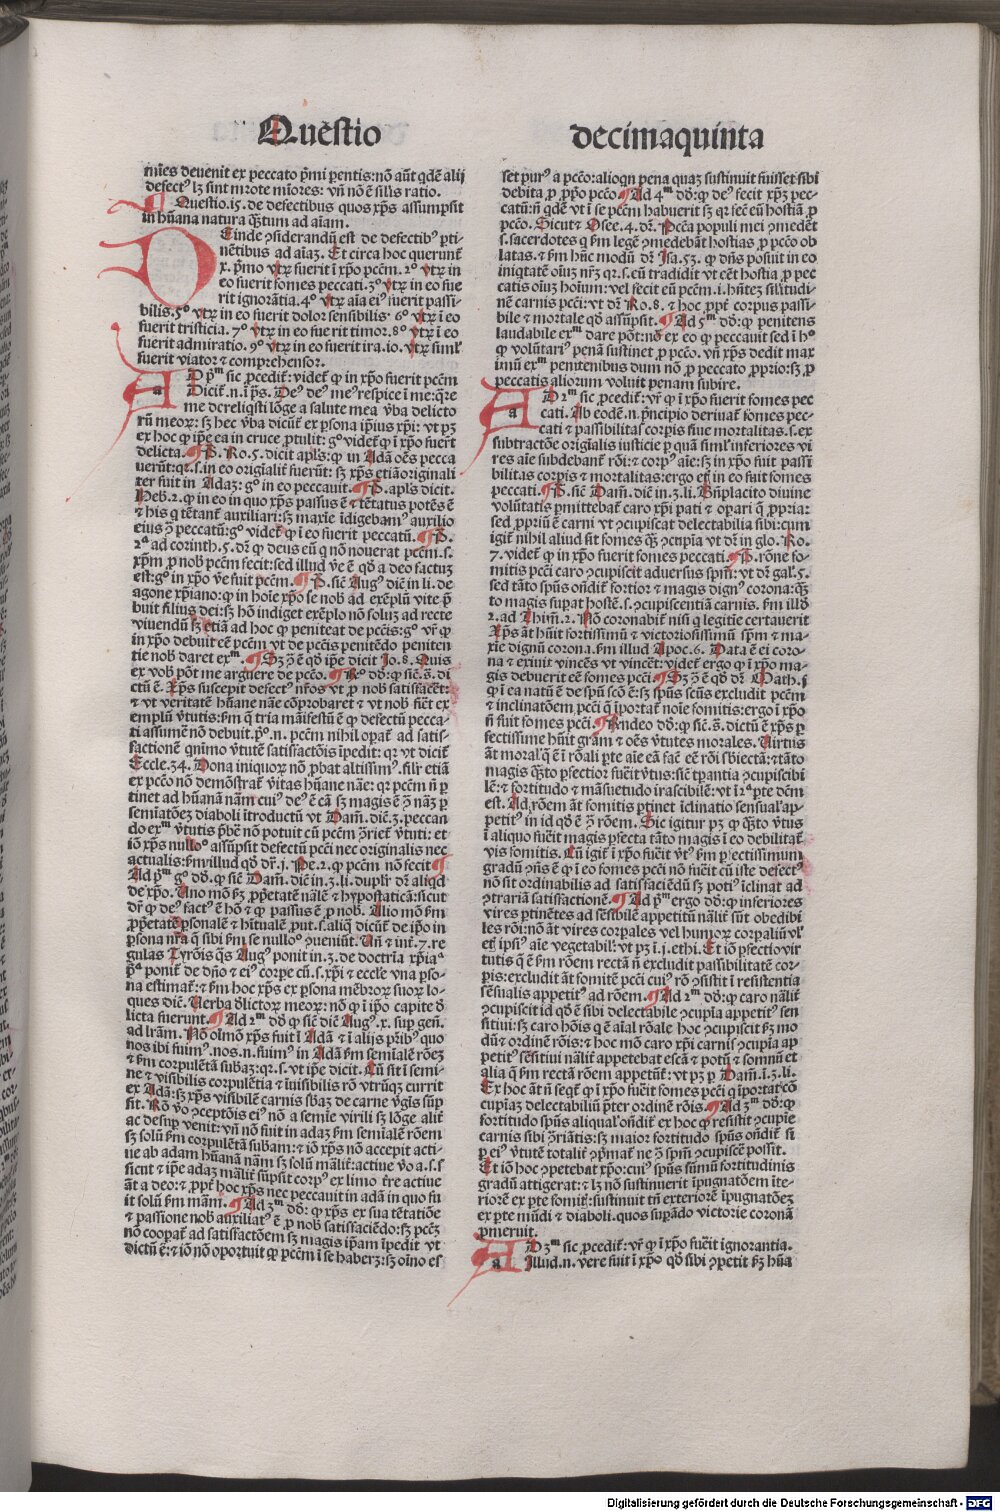 Questio decimaquinta
mies deuenit ex peccato pͥmi pentis: nō aūt qͥdē alij
defectꝰ lꝫ sint mꝛote mioꝛes: vñ nō ē silis ratio.
¶ Questio.15. de defectibus quos xp̄s assumpsit
in hūana natura qͣꝫtum ad aiam.
DEinde ꝯsiderandū est de defectibꝰ ꝑti-
nētibus ad aiaꝫ. Et circa hoc querunt̄
x. pͥmo vtꝝ fuerit i xp̄o pctm̄. 2º vtꝝ in
eo fuerit fomes peccati. 3º vtꝝ in eo fue
rit ignoꝛātia. 4º vtꝝ aīa eiꝰ fuerit passi-
bilis. 5º vtꝝ in eo fuerit doloꝛ sensibilis. 6º vtꝝ i eo
fuerit tristicia. 7º vtꝝ in eo fue rit timoꝛ. 8º vtꝝ i eo
fuerit admiratio. 9º vtꝝ in eo fuerit ira. 10. vtꝝ siml̓
fuerit viatoꝛ ⁊ compꝛehensoꝛ.
AD pᵐ sic ꝓcedit̄: videt̄ ꝙ in xp̄o fuerit pctm̄
Dicit̄. n. i ps̄. Deꝰ deꝰ meꝰ respice i me: qͣre
me dereliqͥsti lōge a salute mea ꝟba delicto
rū meoꝝ: sꝫ hec ꝟba dicūt̄ ex ꝑsona ip̄ius xp̄i: vt pꝫ
ex hoc ꝙ ip̄e ea in cruce ꝓtulit: gº videt̄ ꝙ i xp̄o fuert̄
delicta. ¶ P. Ro.5. dicit apl̄s: ꝙ in Adā oēs pecca
uerūt: qꝛ. s. in eo oꝛigialit̄ fuerūt: sꝫ xp̄s etiā oꝛiginali
ter fuit in Adaꝫ: gº in eo peccauit. ¶ P. apl̄s dicit.
Heb. 2. ꝙ in eo in quo xp̄s passus ē ⁊ tētatus potēs ē
⁊ his q̄ tētant̄ auxiliari: sꝫ maxie idigebamꝰ auxilio
eiꝰ ꝯ peccatū: gº videt̄ ꝙ i eo fuerit peccatū. ¶ P.
2ª ad coꝛinth. 5. dr̄ ꝙ deus eū q̄ nō nouerat pctm̄. s.
xp̄m ꝓ nob̄ pctm̄ fecit: sed illud ꝟe ē qd̄ a deo factuꝫ
est: gº in xp̄o ꝟe fuit pctm̄. ¶ P. sic̄ Augꝰ dic̄ in li. de
agone xp̄iano: ꝙ in hoie xp̄o se nob̄ ad exēplū vite pͣ
buit filius dei: sꝫ hō indiget exēplo nō soluꝫ ad recte
viuendū sꝫ etiā ad hoc ꝙ peniteat de pctīs: gº vr̄ ꝙ
in xp̄o debuit eē pctm̄ vt de pctīs penitēdo peniten
tie nob̄ daret exᵐ. ¶ Sꝫ ꝯ ē qd̄ ip̄e dicit Jo. 8. Quis
ex vob̄ pōt me arguere de pctō. ¶ Rº dd̄: ꝙ sic̄. s̄. di
ctū ē. Xp̄s suscepit defectꝰ nr̄os vt ꝓ nob̄ satisfacēt̄:
⁊ vt veritatē hūane nāe cōꝓbaret ⁊ vt nob̄ fiet̄ ex
emplū ꝟtutis: ẜm q̄ tria māifestū ē ꝙ defectū pecca-
ti assumē nō debuit. pº. n. pctm̄ nihil opat̄ ad satis-
factionē quīmo ꝟtutē satisfactōis ip̄edit: qꝛ vt dicit̄
Eccle. 34. Dona iniquoꝝ nō ꝓbat altissimꝰ. silr̄ etiā
ex pctō nō demōstrat̄ ꝟitas hūane nāe: qꝛ pctm̄ nō ꝑ
tinet ad hūanā nām cuiꝰ deꝰ ē cā sꝫ magis ē ꝯ nāꝫ ꝑ
semiatōeꝫ diaboli itroductū vt Dam̄. dic̄. 3. peccan
do exᵐ ꝟtutis pͣbē nō potuit cū pctm̄ ꝯriet̄ ꝟtuti: et
iō xp̄s nulloº assūpsit defectū pctī nec oꝛiginalis nec
actualis: ẜm illud qd̄ dr̄. 1. Pe. 2. ꝙ pctm̄ non fecit ¶
Ad pᵐ gº dd̄. ꝙ sic̄ Dam̄. dic̄ in. 3. li. duplr̄ dr̄ aliqd̄
de xp̄o. Uno mō ẜꝫ ꝓpͥetatē nālē ⁊ hypostaticā: sicut
dr̄ ꝙ deꝰ factꝰ ē hō ⁊ ꝙ passus ē ꝓ nob̄. Alio mō ẜm
ꝓpͥetatē ꝑsonalē ⁊ hitualē ꝓut. s. aliq̄ dicūt̄ de ip̄o in
ꝑsona nr̄a q̄ sibi ẜm se nulloº ꝯueniūt. Uñ ⁊ int̄. 7. re
gulas Tyroīs qͣs Augꝰ ponit in. 3. de doctrīa xp̄iaª
pͣª ponit̄ de dn̄o ⁊ eiꝰ coꝛpe cū. s. xp̄i ⁊ eccl̄e vna pso-
na estimat̄: ⁊ ẜm hoc xp̄s ex ꝑsona mēbꝛoꝝ suoꝝ lo-
ques dic̄. Uerba dlictoꝝ meoꝝ: nō ꝙ i ip̄o capite d̄
licta fuerunt. ¶ Ad 2ᵐ dd̄ ꝙ sic̄ dic̄ Augꝰ. x. suꝑ gen̄.
ad lr̄am. Nō oīmō xp̄s fuit i Adā ⁊ i alijs pr̄ibꝰ quo
nos ibi fuimꝰ. nos. n. fuimꝰ in Adā ẜm semialē rōeꝫ
⁊ ẜm coꝛpulētā subaꝫ: qꝛ. s. vt ip̄e dicit. Cū sit i semi-
ne ⁊ visibilis coꝛpulētia ⁊ iuisibilis rō vtrūqꝫ currit
ex Adā: sꝫ xp̄s visibilē carnis sb̄aꝫ de carne ꝟgis sūp
sit. Rō ꝟo ꝯceptōis eiꝰ nō a semie virili sꝫ lōge alit̄
ac desuꝑ venit: vñ nō fuit in adaꝫ ẜm semialē rōem
sꝫ solū ẜm coꝛpulētā subam: ⁊ iō xp̄s nō accepit acti-
ue ab adam hūanā nām sꝫ solū mālit̄: actiue ꝟo a. s. s
sicut ⁊ ip̄e adaꝫ mālit̄ sūpsit coꝛpꝰ ex limo tr̄e actiue
āt a deo: ⁊ ꝓpt̄ hoc xp̄s nec peccauit in adā in quo fu
it solū ẜm mām. ¶ Ad 3ᵐ dd̄: ꝙ xp̄s ex sua tētatiōe
⁊ passione nob̄ auxiliatꝰ ē ꝓ nob̄ satisfaciēdo: sꝫ pctꝫ
nō coopat̄ ad satisfactōem sꝫ magis ip̄am ip̄edit vt
dictū ē: ⁊ iō nō opoꝛtuit ꝙ pctm̄ i se haberꝫ: sꝫ oīno eſ
set purꝰ a pctō: alioqn̄ pena quaꝫ sustinuit fuisset sibi
debita ꝓ ꝓpͥo pctō. ¶ Ad 4ᵐ dd̄: ꝙ deꝰ fecit xp̄ꝫ pec-
catū: n̄ qͥdē vt i se pctm̄ habuerit sꝫ qꝛ fec̄ eū hostiā ꝓ
pctō. Sicut ⁊ Osee. 4. dr̄. Pctā populi mei ꝯmedēt
s. sacerdotes q̄ ẜm legē ꝯmedebāt hostias ꝓ pctō ob
latas. ⁊ ẜm hūc modū dr̄ Jsa. 53. ꝙ dn̄s posuit in eo
iniqͥtatē oīuꝫ nr̄ꝫ qꝛ. s. eū tradidit vt eēt hostia ꝓ pec
catis oīuꝫ hoīum: vel fecit eū pctm̄. i. hn̄teꝫ silitudi-
nē carnis pctī: vt dr̄ Ro. 8. ⁊ hoc ꝓpt̄ coꝛpus passi-
bile ⁊ moꝛtale qd̄ assūpsit. ¶ Ad 5ᵐ dd̄: ꝙ penitens
laudabile exᵐ dare pōt: nō ex eo ꝙ peccauit sed i hº
ꝙ volūtariꝰ penā sustinet ꝓ pctō. vñ xp̄s dedit max
imū exᵐ penitentibus dum nō ꝓ peccato ꝓpꝛio: sꝫ ꝓ
peccatis alioꝛum voluit penam subire.
AD 2ᵐ sic ꝓcedit̄: vr̄ ꝙ i xp̄o fuerit fomes pec
cati. Ab eodē. n. pͥncipio deriuat̄ fomes pec-
cati ⁊ passibilitas coꝛpis siue moꝛtalitas. s. ex
subtractōe oꝛigialis iusticie ꝑ quā siml̓ inferioꝛes vi
res aīe subdebant̄ rōi: ⁊ coꝛpꝰ aīe: sꝫ in xp̄o fuit passi
bilitas coꝛpis ⁊ moꝛtalitas: ergo etiā in eo fuit fomes
peccati. ¶ P. sic̄ Dam̄. dic̄ in. 3. li. Bn̄placito diuine
volūtatis pͥmittebat̄ caro xp̄i pati ⁊ opari q̄ ꝓpͥa:
sed ꝓpͥū ē carni vt ꝯcupiscat delectabilia sibi: cum
igit̄ nihil aliud sit fomes qͣꝫ ꝯcupīa vt dr̄ in glo. Ro.
7. videt̄ ꝙ in xp̄o fuerit fomes peccati. ¶ P. rōne fo-
mitis pctī caro ꝯcupiscit aduersus spm̄: vt dr̄ gal. 5.
sed tāto spūs oñdit̄ foꝛtioꝛ ⁊ magis dignꝰ coꝛona: qͣꝫ
to magis suꝑat hostē. s. ꝯcupiscentiā carnis. ẜm illd̄
2. ad Thim̄. 2. Nō coꝛonabit̄ nisi q̄ legitie certauerit
Xp̄s āt hūit foꝛtissimū ⁊ victoꝛiosissimū spm̄ ⁊ ma-
xie dignū coꝛona. ẜm illud Apoc. 6. Data ē ei coꝛo-
na ⁊ exiuit vincēs vt vincēt: videt̄ ergo ꝙ i xp̄o ma-
gis debuerit eē fomes pctī. ¶ Sꝫ ꝯ ē qd̄ dr̄. Math. 1
qd̄ i ea natū ē de spū scō ē: sꝫ spūs scūs excludit pctm̄
⁊ inclinatōem pctī q̄ ipoꝛtat̄ noīe fomitis: ergo i xp̄o
n̄ fuit fomes pctī. ¶ Rn̄deo dd̄: ꝙ sic̄. s̄. dictū ē xp̄s ꝑ
fectissime hūit gr̄am ⁊ oēs ꝟtutes moꝛales. Uirtus
āt moꝛal̓ q̄ ē i rōali ꝑte aīe eā fac̄ eē rōi sb̄iectā: ⁊ tāto
magis qͣꝫto ꝑfectioꝛ fuerit ꝟtus: sic̄ tꝑantia ꝯcupiscibi
lē: ⁊ foꝛtitudo ⁊ māsuetudo irascibilē: vt i 2ª ꝑte dc̄m
est. Ad rōem āt fomitis ꝑtinet iclinatio sensual̓ ap-
petitꝰ in id qd̄ ē ꝯ rōem. Sic igitur pꝫ ꝙ qͣꝫto ꝟtus
i aliquo fuerit magis ꝑfecta tāto magis i eo debilitat̄
vis fomitis. Cū igit̄ i xp̄o fuerit ꝟtꝰ ẜm ꝑfectissimum
gradū ꝯn̄s ē ꝙ i eo fomes pctī nō fuerit cū iste defectꝰ
nō sit oꝛdinabilis ad satisfaciēdū sꝫ potiꝰ iclinat ad
ꝯtrariā satisfactionē. ¶ Ad pᵐ ergo dd̄: ꝙ inferioꝛes
vires ꝑtinētes ad sēsibilē appetitū nālit̄ sūt obedibi
les rōi: nō āt vires coꝛpales vel humoꝝ coꝛpaliū vl̓
etꝫ ip̄s aīe vegetabil̓: vt pꝫ i. 1. ethi. Et iō ꝑfectio vir
tutis q̄ ē ẜm rōem rectā n̄ excludit passibilitatē coꝛ-
pis: excludit āt fomitē pctī cuiꝰ rō ꝯsistit i resistentia
sēsualis appetitꝰ ad rōem. ¶ Ad 2ᵐ dd̄: ꝙ caro nālit̄
ꝯcupiscit id qd̄ ē sibi delectabile ꝯcupīa appetitꝰ sen
sitiui: sꝫ caro hōis q̄ ē aīal rōale hoc ꝯcupiscit ẜꝫ mo
dū ⁊ oꝛdinē rōis: ⁊ hoc mō caro xp̄i carnis ꝯcupīa ap
petitꝰ sēsitiui nālit̄ appetebat escā ⁊ potū ⁊ somnū et
alia q̄ ẜm rectā rōem appetūt̄: vt pꝫ ꝑ Dam̄. i. 3. li.
Ex hoc āt n̄ seqt̄ ꝙ i xp̄o fuerit fomes pctī q̄ ipoꝛtat ꝯcō
cupiaꝫ delectabiliū pͥter oꝛdinē rōis. ¶ Ad 3ᵐ dd̄: ꝙ
foꝛtitudo spūs aliqual̓ oñdit̄ ex hoc ꝙ resistit ꝯcupīe
carnis sibi ꝯriātis: sꝫ maioꝛ foꝛtitudo spūs oñdit̄ si
ꝑ eiꝰ ꝟtutē totalit̄ ꝯpͥmat̄ ne ꝯ spm̄ ꝯcupiscē possit.
Et iō hoc ꝯpetebat xp̄o: cuiꝰ spūs sūmū foꝛtitudinis
gradū attigerat: ⁊ lꝫ nō sustinuerit ipugnatōem ite-
rioꝛē ex ꝑte fomit̄: sustinuit tn̄ exterioꝛē ipugnatōeꝫ
ex ꝑte mūdi ⁊ diaboli. quos suꝑādo victoꝛie coꝛonā
ꝓmeruit.
AD 3ᵐ sic ꝓcedit̄: vr̄ ꝙ i xp̄o fuerit ignoꝛantia.
Jllud. n. vere fuit i xp̄o qd̄ sibi ꝯpetit ẜꝫ hūa
Digitalisierung gefördert durch die Deutsche Forschungsgemeinschaft - DFG